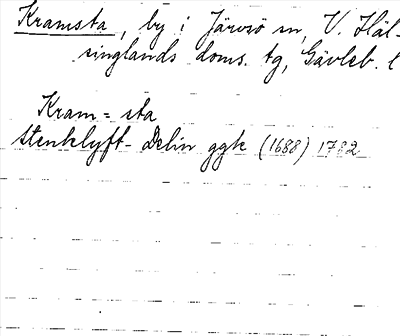 Kramsta, by i Järvsö sn, V. Häl-
singlands doms. tg, Gävleb. l
Kram = sta
Stenklyft- Delin ggk (1688) 1782